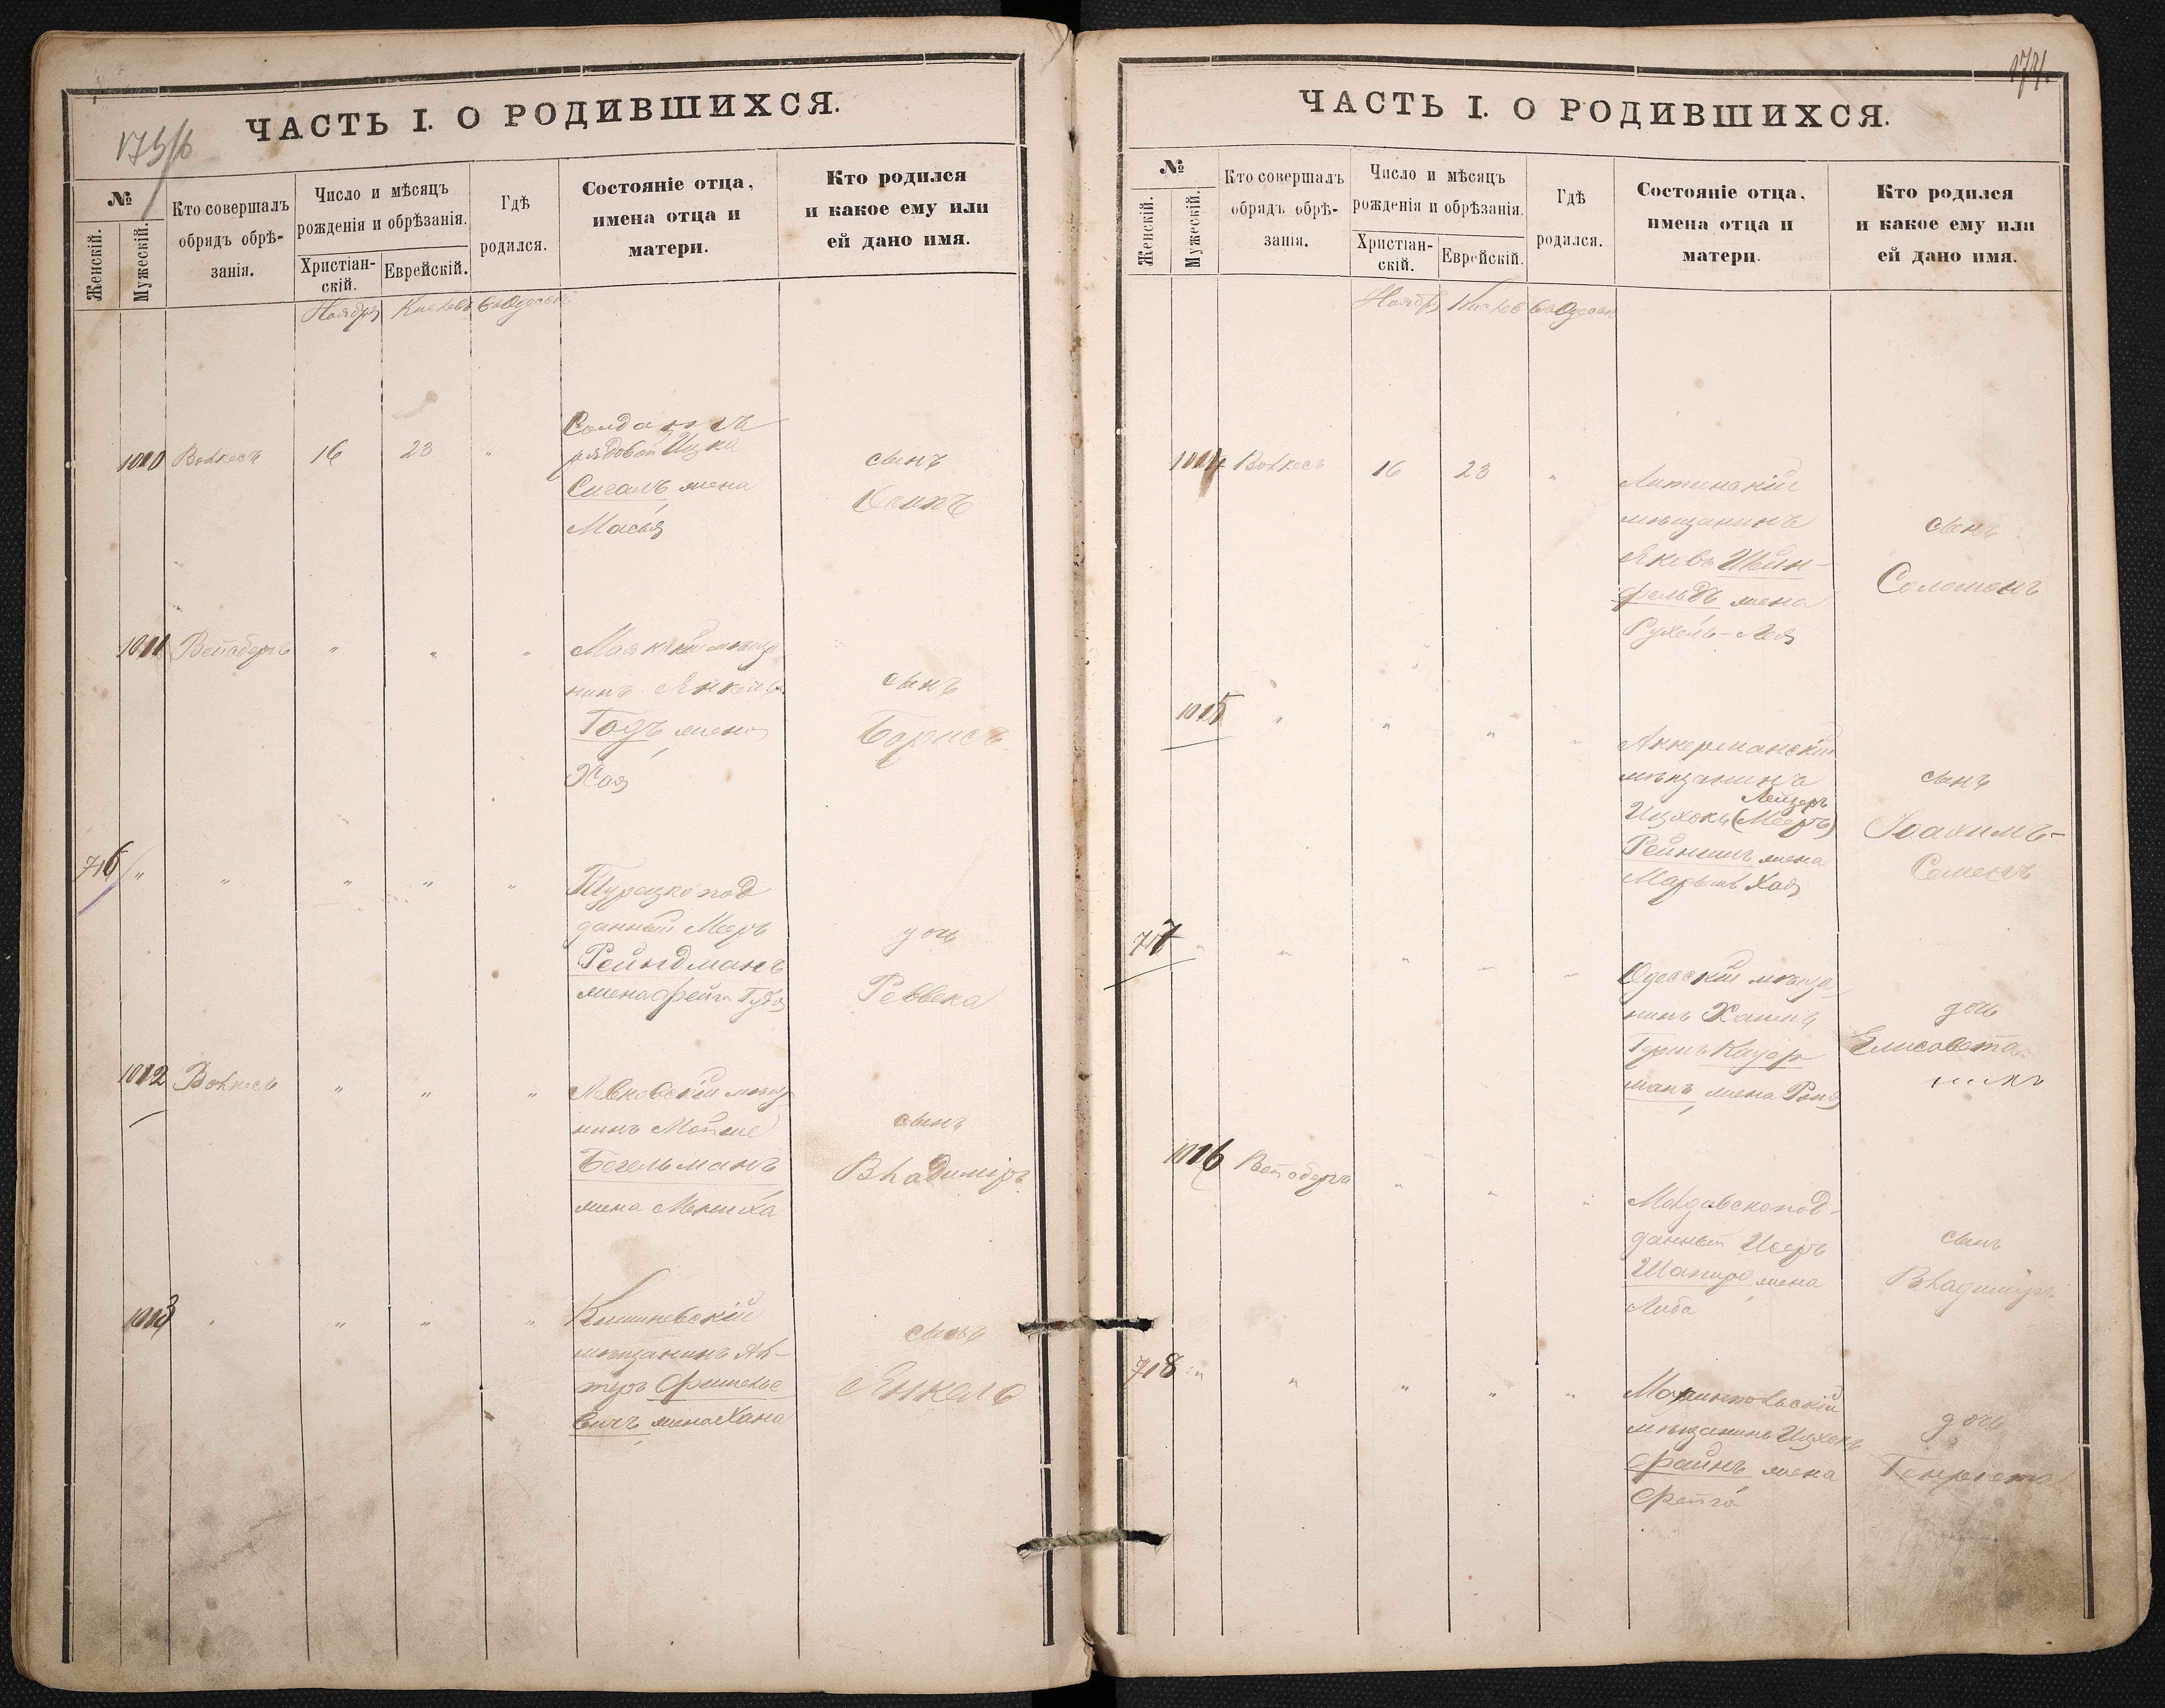 173/6
ЧАСТЬ I. О РОДИВШИХСЯ.
№
Женскій.
Мужескій.
Кто совершалъ
обрядъ обрѣ-
занія.
Число и мѣсяцъ
рожденія и обрѣзанія.
Христіан-
скій.
Еврейскій.
Гдѣ
родился.
Состояніе отца,
имена отца и
матери.
Кто родился
и какое ему или
ей дано имя.
Ноября Кислевъ въ Одессѣ
1010 Волкесъ 16 23 "
Солдатъ
рядовой Ицка
Сигалъ жена
Масья
сынъ
Осипъ
1011 Вейсбергъ " " "
Маякскій мѣща
нинъ Янкель
Годъ жена
Хая
сынъ
Борисъ
716 " " " " "
Турецко под
данный Мееръ
Рейндманъ
жена Фейга
дочь
Реввека
1012 Волкесъ " " "
мѣщ
нинъ Мойше
Бегельманъ
жена
сынъ
Владиміръ
1013 " " " "
Кишиневскій
мѣщанинъ Аль-
теръ
вичъ жена Хана
сынъ
Янкель
174.
ЧАСТЬ I. О РОДИВШИХСЯ.
№
Женскій.
Мужескій.
Кто совершалъ
обрядъ обрѣ-
занія.
Число и мѣсяцъ
рожденія и обрѣзанія.
Христіан-
скій.
Еврейскій.
Гдѣ
родился.
Состояніе отца,
имена отца и
матери.
Кто родился
и какое ему или
ей дано имя.
Ноябрь Кислев въ Одессѣ
1014 Волкесъ 16 23 "
Литинскій
мѣщанинъ
Яковъ Шейн-
фельдъ жена
Рухель-Лея
сынъ
Соломонъ
1015 " " " "
Аккерманскій
мѣщанинъ
Лейзеръ
Ицхокъ (Мееръ)
жена
Хая
сынъ
Іоахимъ-
Семенъ
717 " " " " "
Одесскій мѣща
нинъ Хаимъ
Гершъ Кауф
манъ жена
дочь
Елисавета
1016 Вейсбергъ " " "
Молдавскопод-
данный
Шапиро жена
Либа
сынъ
Владиміръ
718 " " " " "
Маріинпольскій
мѣщанинъ Ицхокъ
Файнъ жена
Фейга
дочь
Генріета